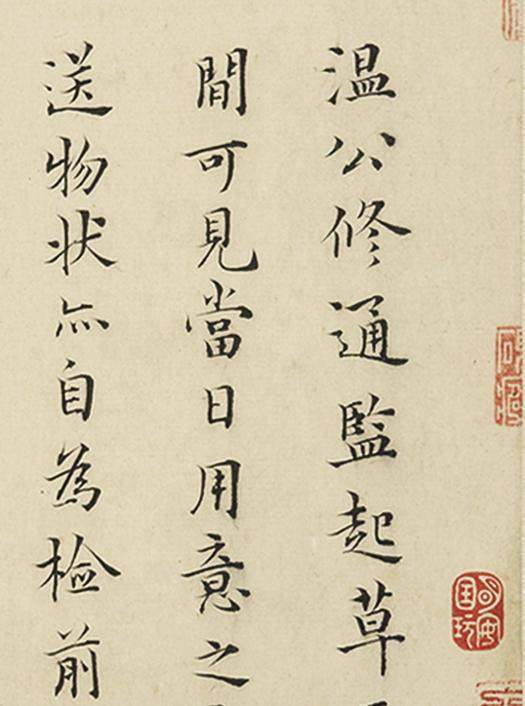 温公修通監起草
間可見當日用意之
送物状亦自為检前
明安国玩